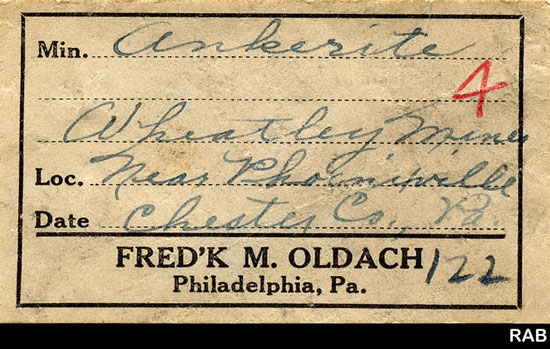 Min. Ankerite
4
Wheatley Mines
Loc. Near Phoenixville
Date Chester Co., Pa.
FRED'K M. OLDACH 122
Philadelphia, Pa.
RAB